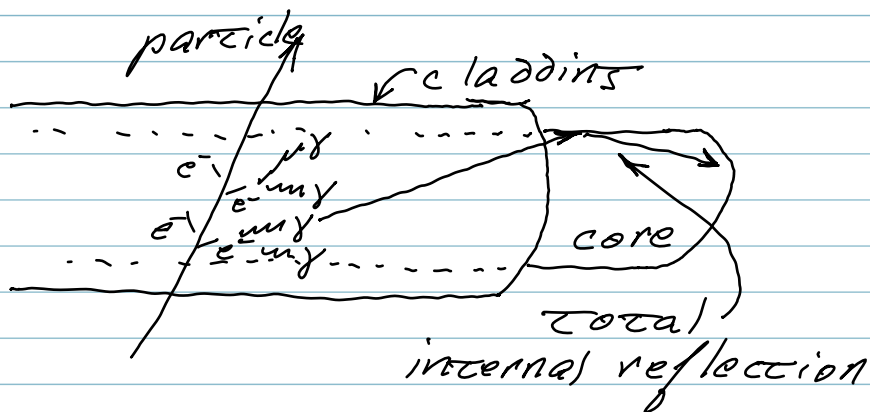 particle
cladding
e⁻ γ
e⁻ γ
e⁻ γ
e⁻ γ
core
total
internal reflection